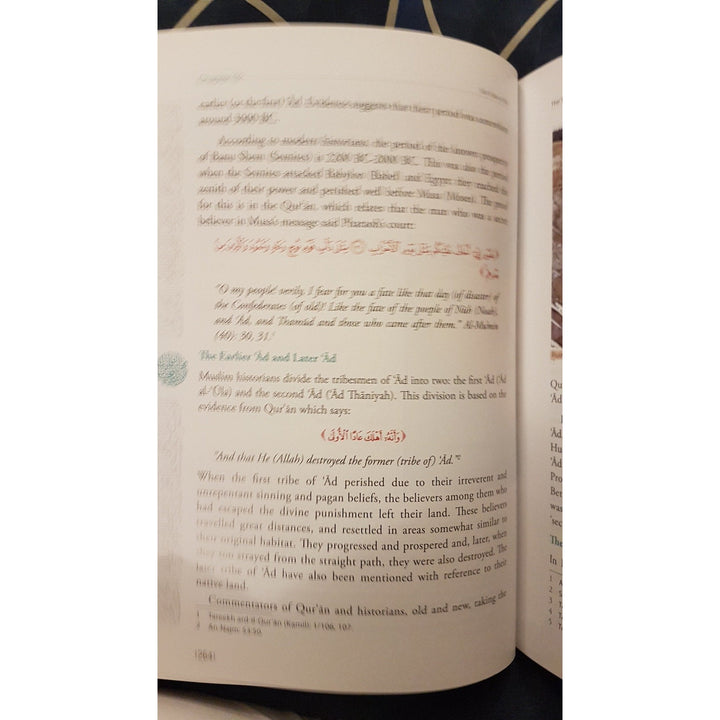 earlier (or the first) 'Ād. Evidence suggests that their period was somewhere
around 3000 BC.
According to modern historians, the period of the known prosperity
of Banu Sham (Semites) is 2200 BC-2000 BC. This was also the period
when the Semites attacked Babylon and Egypt; they reached the
zenith of their power and perished well before Musa (Moses). The proof
for this is in the Qur'ān, which relates that the man who was a secret
believer in Musa's message said Pharaoh's court:
"O my people! verily, I fear for you a fate like that day (of disaster) of
the Confederates (of old)! Like the fate of the people of Nūh (Noah),
and 'Ād, and Thamūd and those who came after them." Al-Mu'min
(40): 30, 31.
The Earlier 'Ād and Later 'Ād
Muslim historians divide the tribesmen of 'Ād into two: the first 'Ād ('Ād
al-'Ūla) and the second 'Ād ('Ād Thāniyah). This division is based on the
evidence from Qur'ān which says:
﴿وَأَنَّهُ أَهْلَكَ عَادًا الْأُولَىٰ﴾
"And that He (Allah) destroyed the former (tribe of) 'Ād."²
When the first tribe of 'Ād perished due to their irreverent and
unrepentant sinning and pagan beliefs, the believers among them who
had escaped the divine punishment left their land. These believers
travelled great distances, and resettled in areas somewhat similar to
their original habitat. They progressed and prospered and, later, when
they too strayed from the straight path, they were also destroyed. The
later tribe of 'Ād have also been mentioned with reference to their
native land.
Commentators of Qur'ān and historians, old and new, taking the
1 Tareekh ard il Qur'ān (Kamil): 1/106, 107.
2 An Najm: 53:50.
(264)
Qu
'Ād
'Ād
Hu
'Ād
Pro
Ber
was
'sec
The
In
1 A
2 S
3 Ta
4 Ta
5 Ta